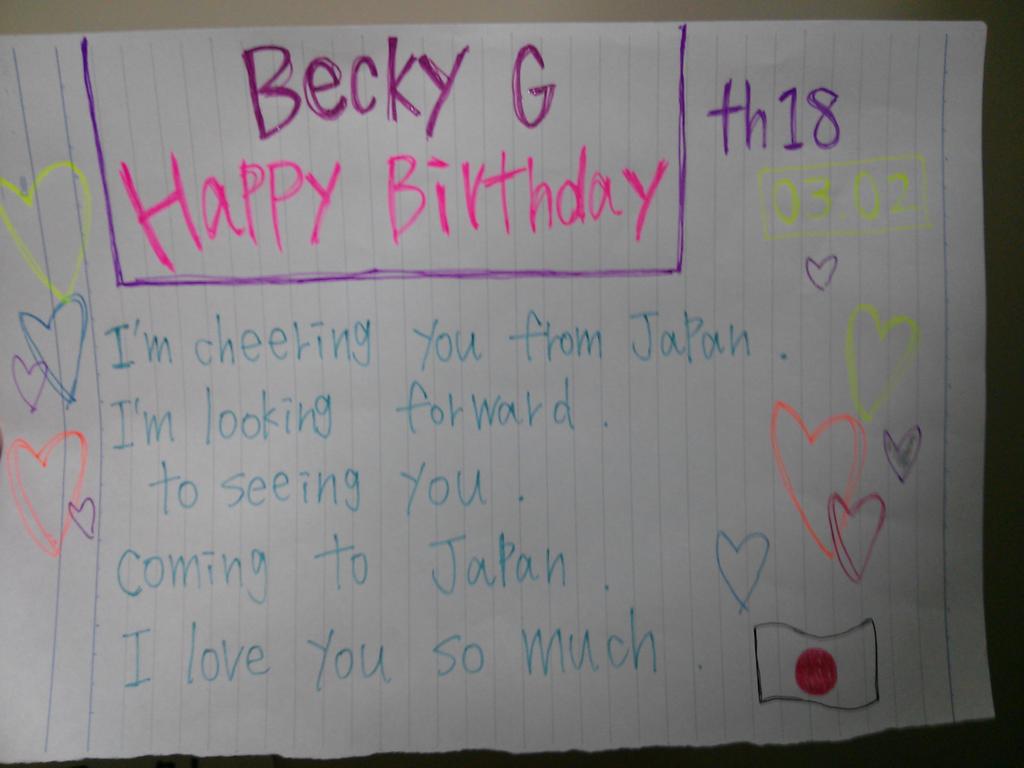 Becky G
Happy Birthday
th18
03.02
I'm cheering you from Japan.
I'm looking forward.
to seeing you.
coming to Japan.
I love you so much.